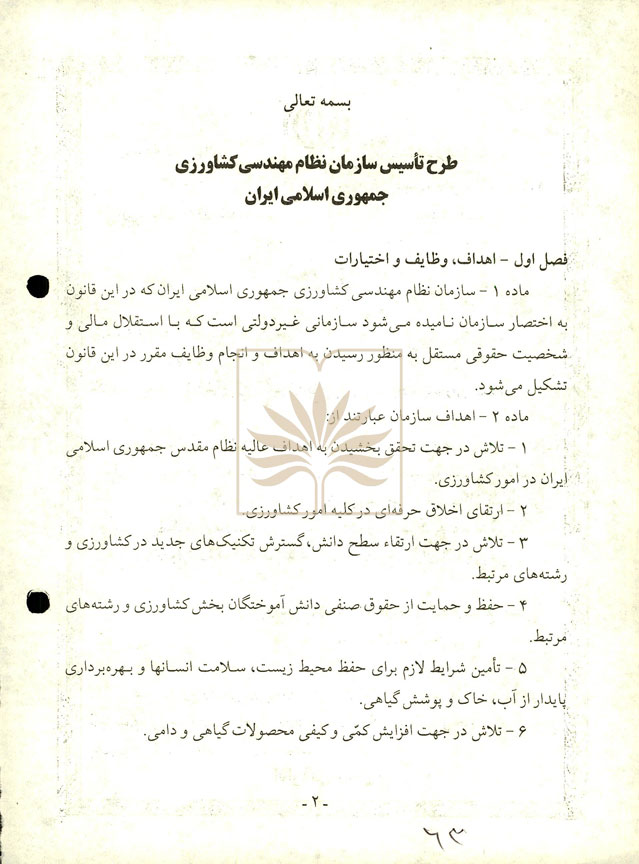 بسمه تعالی
طرح تأسیس سازمان نظام مهندسی کشاورزی
جمهوری اسلامی ایران
فصل اول - اهداف، وظایف و اختیارات
ماده ۱ - سازمان نظام مهندسی کشاورزی جمهوری اسلامی ایران که در این قانون
به اختصار سازمان نامیده می‌شود سازمانی غیردولتی است که با استقلال مالی و
شخصیت حقوقی مستقل به منظور رسیدن به اهداف و انجام وظایف مقرر در این قانون
تشکیل می‌شود.
ماده ۲ - اهداف سازمان عبارتند از:
۱ - تلاش در جهت تحقق بخشیدن به اهداف عالیه نظام مقدس جمهوری اسلامی
ایران در امور کشاورزی.
۲ - ارتقای اخلاق حرفه‌ای در کلیه امور کشاورزی.
۳ - تلاش در جهت ارتقاء سطح دانش، گسترش تکنیک‌های جدید در کشاورزی و
رشته‌های مرتبط.
۴ - حفظ و حمایت از حقوق صنفی دانش آموختگان بخش کشاورزی و رشته‌های
مرتبط.
۵ - تأمین شرایط لازم برای حفظ محیط زیست، سلامت انسانها و بهره‌برداری
پایدار از آب، خاک و پوشش گیاهی.
۶ - تلاش در جهت افزایش کمّی و کیفی محصولات گیاهی و دامی.
- ۲ -
۶۳